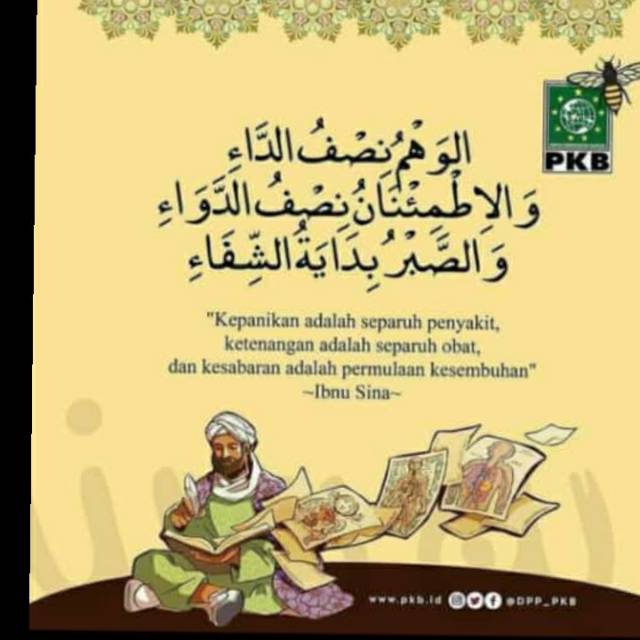 PKB
الوَهْمُ نِصْفُ الدَّاءِ
وَالِاطْمِئْنَانُ نِصْفُ الدَّوَاءِ
وَالصَّبْرُ بِدَايَةُ الشِّفَاءِ
"Kepanikan adalah separuh penyakit,
ketenangan adalah separuh obat,
dan kesabaran adalah permulaan kesembuhan"
~Ibnu Sina~
www.pkb.id @DPP_PKB